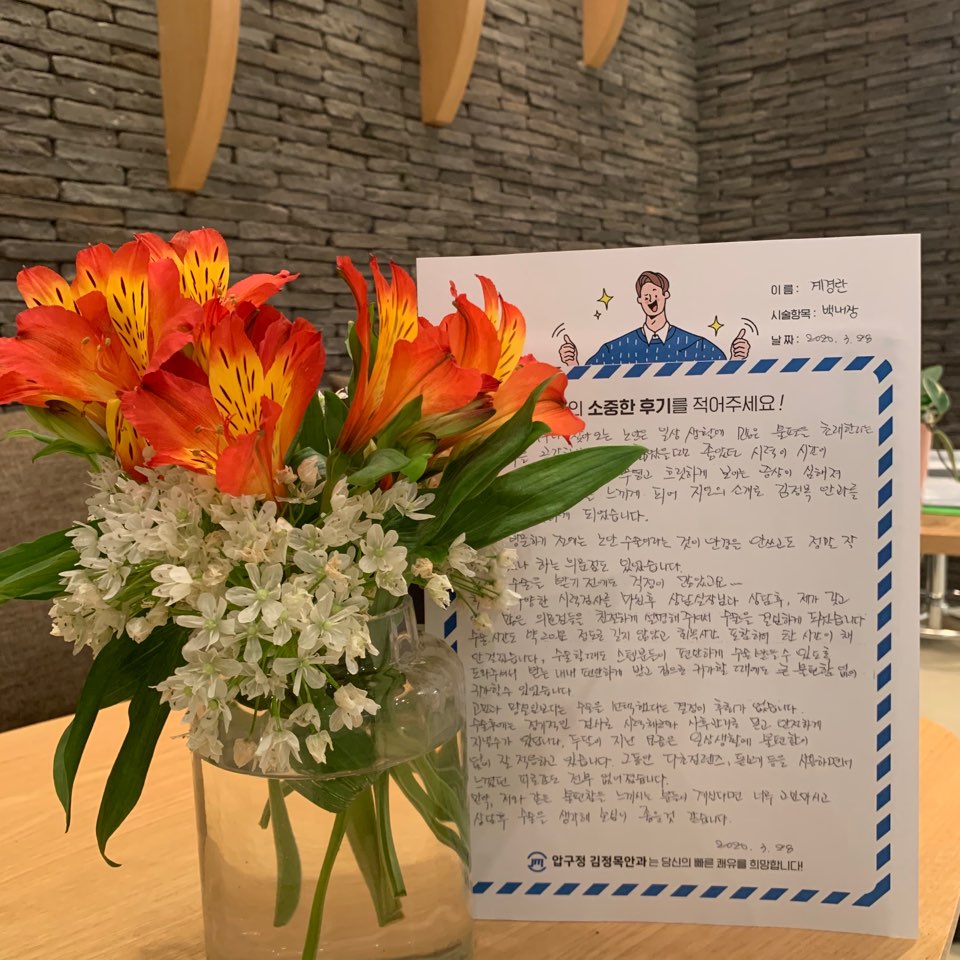 이름: 계경란
시술항목: 백내장
날짜: 2020. 3. 28
의 소중한 후기를 적어주세요!
오는 노안은 일상 생활에 많은 불편을 초래한다는
시력이 시간이
보이는 증상이 심해져
느끼게 되어 지인의 소개로 김정목 안과를
되었습니다.
전에는 노안 수술이라는 것이 안경을 안쓰고도 정말 잘
하는 의문점도 있었습니다.
수술을 받기 전에도 걱정이 많았고요~
다양한 시력검사를 마친후 상담실장님과 상담후, 제가 갖고
많은 의문점들을 친절하게 설명해주셔서 수술을 결심하게 되었습니다
수술 시간도 약 20여분 정도로 길지 않았고 회복시간 포함하여 한 시간이 채
안 걸렸습니다. 수술할때도 스텝분들이 편안하게 수술 받을 수 있도록
도와주셔서 받는 내내 편안하게 받고 집으로 귀가할 때에도 큰 불편함 없이
귀가할수 있었습니다
수술을 선택했다는 결정이 후회가 없습니다.
수술후에는 정기적인 검사로 사후관리를 받고 안전하게
지낼수가 있답니다. 두달이 지난 지금은 일상생활에 불편함이
없이 잘 적응하고 있습니다. 그동안 다초점렌즈, 돋보기 등을 사용하면서
느꼈던 피로감도 전부 없어졌습니다.
만약, 저와 같은 불편함을 느끼시는 분들이 계신다면 너무 고민마시고
상담후 수술을 생각해 보심이 좋을것 같습니다.
2020. 3. 28
JM 압구정 김정목안과는 당신의 빠른 쾌유를 희망합니다!